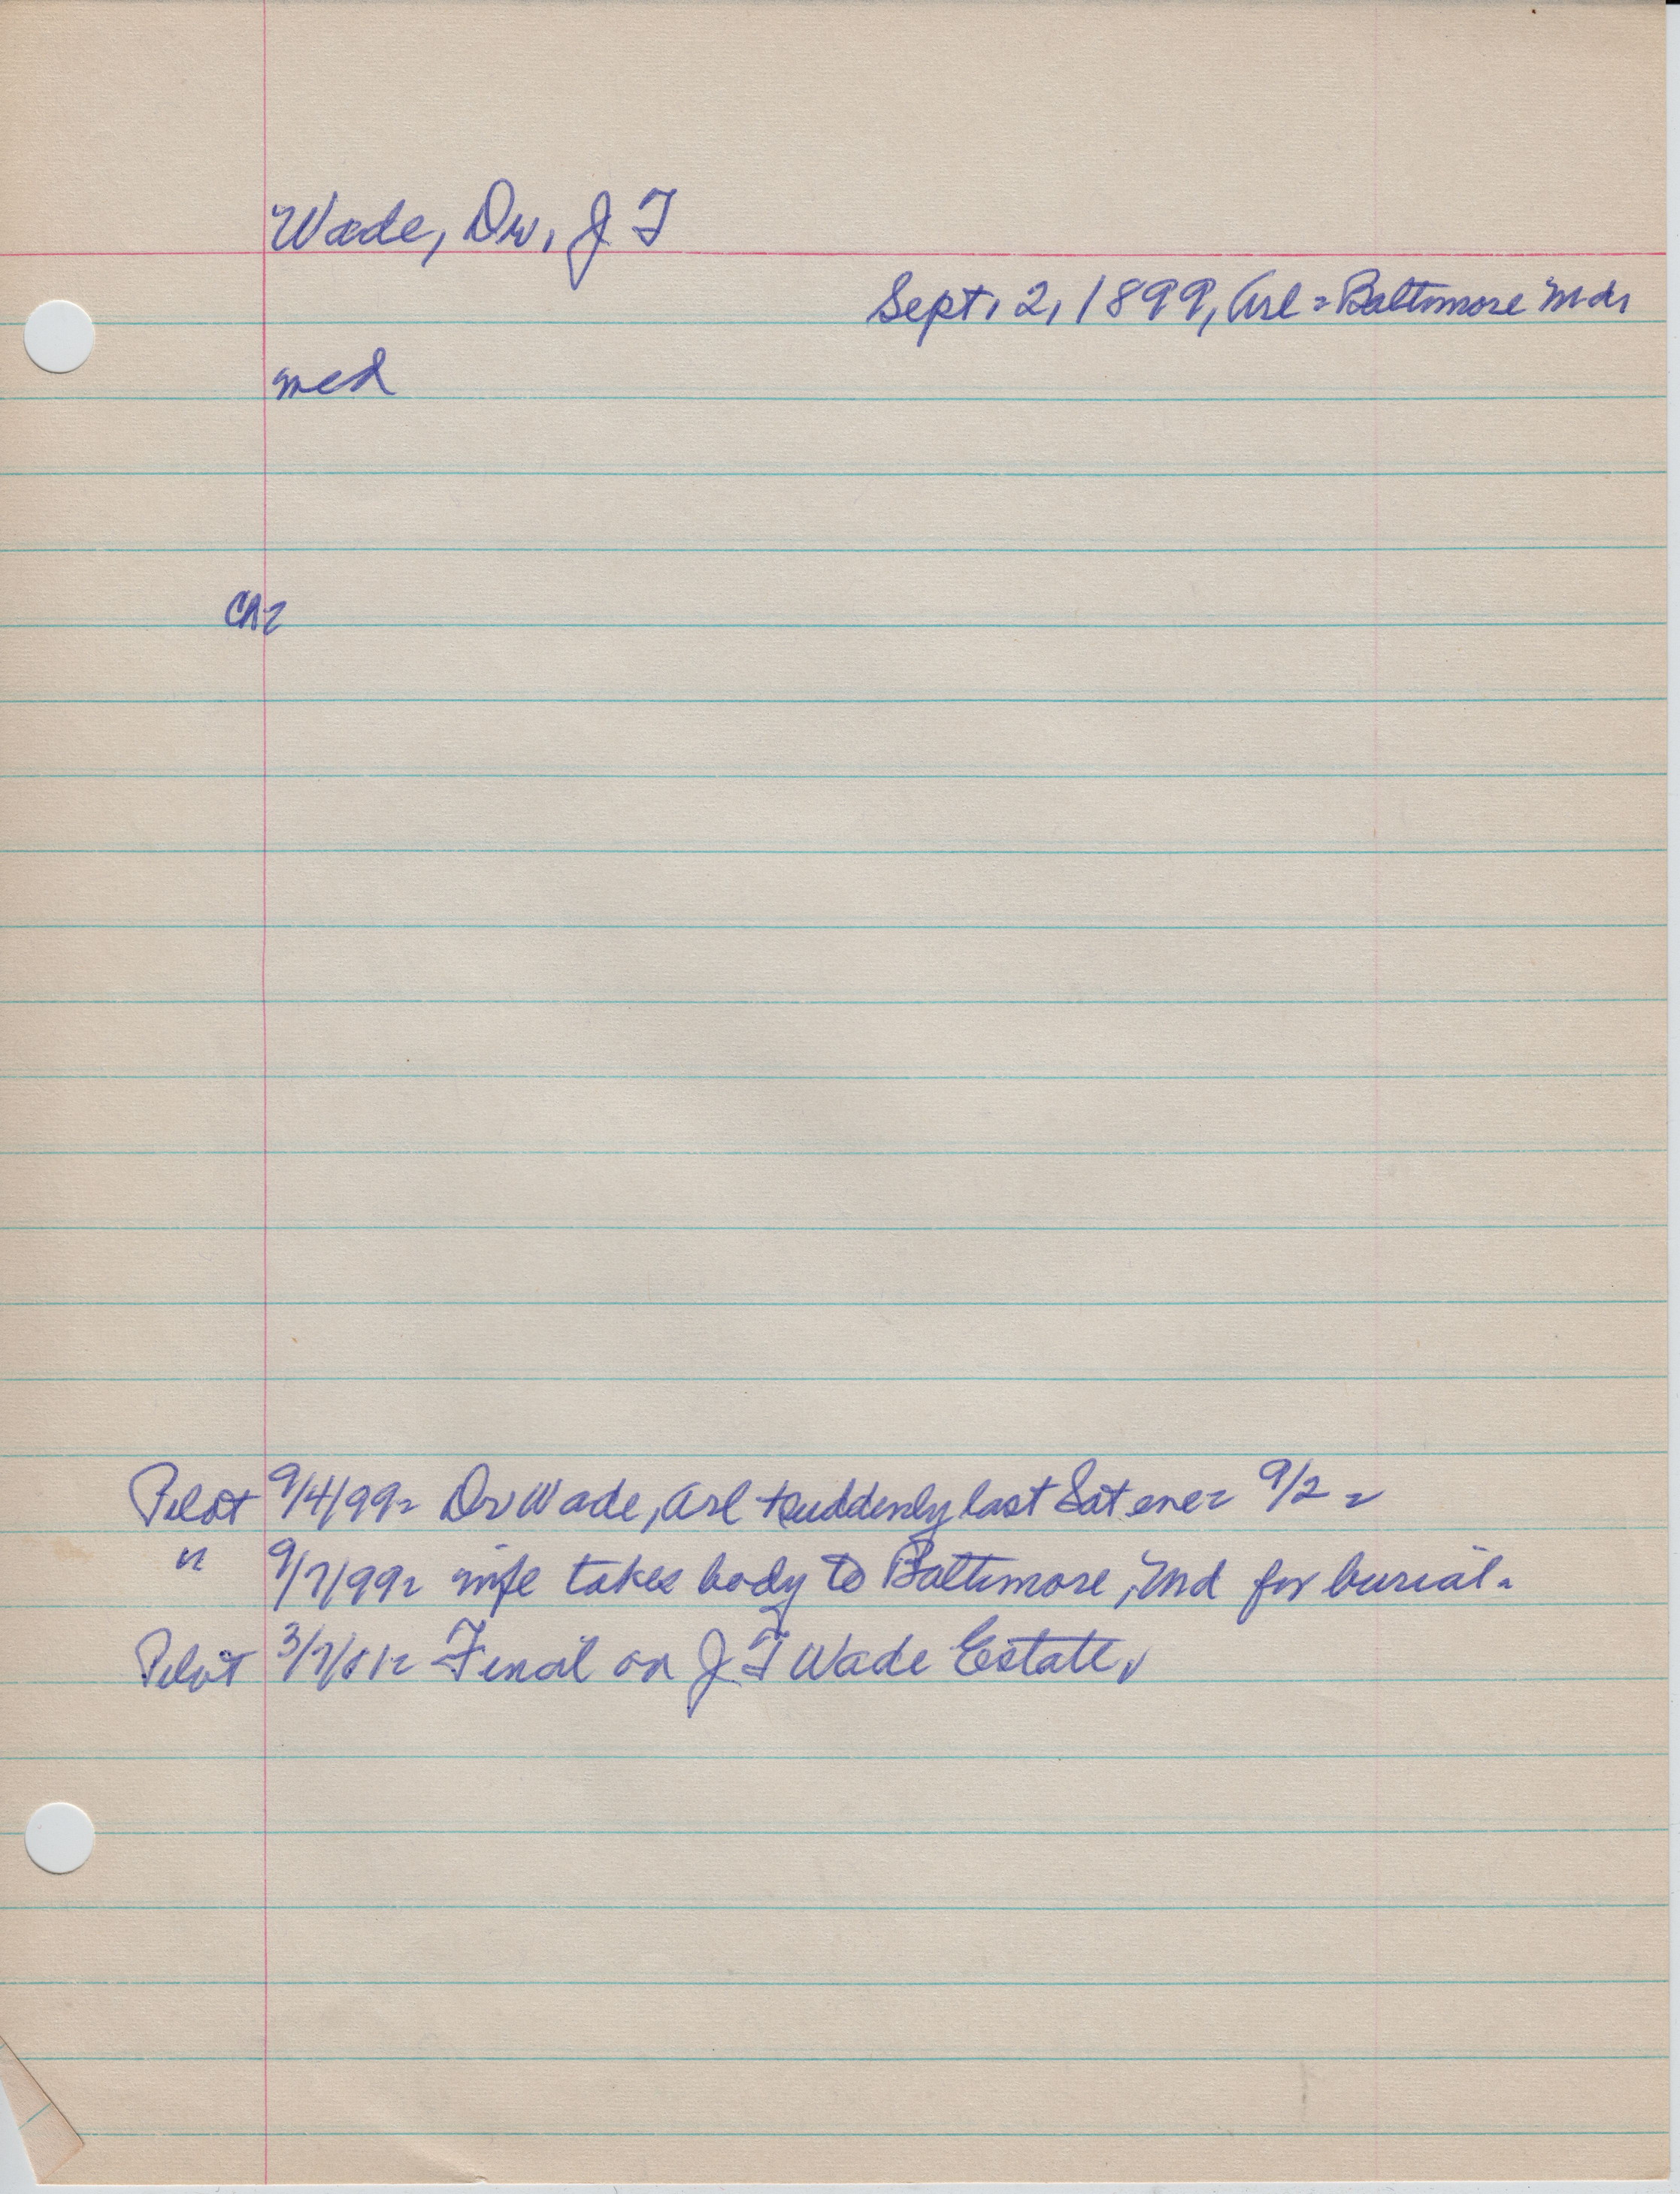 Wade, Dr, J F
Sept, 2, 1899, Arl = Baltimore Md,
med
Ch=
Pilot 9/4/99= Dr Wade, Arl +suddenly last Sat eve= 9/2 =
" 9/7/99= wife takes body to Baltimore, Md for burial-
Pilot 3/7/01= Final on J F Wade Estate,